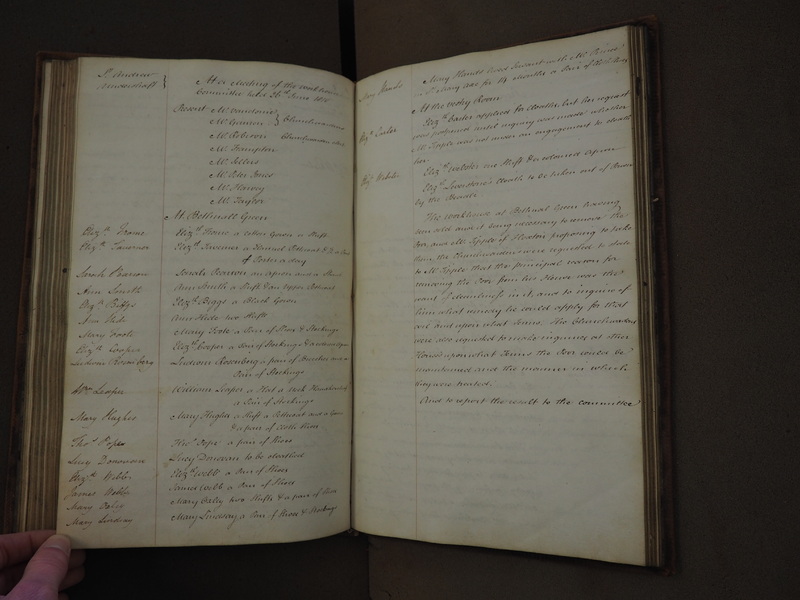 St. Andrew
Undershaft
At a Meeting of the workhouse
Committee held 26th June
Present Mr.
Mr.
Churchwardens
Mr. Robson
Mr. Hampton
Mr. Sellers
Mr. Peter Jones
Mr. Harvey
Mr. Taylor
At Bethnall Green
Elizth. Frome Elizth. Frome a Gown a Shift
Elizth. Taverner Elizth. Taverner a Flannel Petticoat & a
of Porter a day
Sarah Pearson Sarah Pearson an apron and a
Ann Smith Ann Smith a Shift & an upper Petticoat
Elizth. Biggs Elizth. Biggs a Black Gown
Ann Ann two Shifts
Mary Foote Mary Foote a Pair of Shoes & Stockings
Elizth. Cooper Elizth. Cooper a Pair of Stockings & a
Ludwin Rosenberg Ludwin Rosenberg a pair of Breeches and a
Pair of Stockings
Wm. Leaper William Leaper a Hat a neck Handkerchief
a Pair of Stockings
Mary Hughes Mary Hughes a Shift a Petticoat and a Gown
& a pair of
Thos. Pope Thos. Pope a pair of Shoes
Lucy Donovan Lucy Donovan to be cloathed
Elizth. Webb Elizth. Webb a Pair of Shoes
James Webb James Webb a Pair of Shoes
Mary Daley Mary Daley two Shifts & a pair of
Mary Lindsay Mary Lindsay a Pair of Shoes & Stockings
Mary Hands Mary Hands
in St. Mary Axe for 14 months a Pair of
At the vestry Room
Elizth. Carter Elizth. Carter applied for cloaths, but her request
was postponed until inquiry was made whether
Mr. Tipple was not under an engagement to cloath
her.
Elizth. Webster Elizth. Webster one Shift & a coloured Apron
Elizth. Cloaths to be taken out of Pawn
by the Beadle.
The workhouse at Bethnal Green having
been sold and it being necessary to remove the
Poor, and Mr. Tipple of Hoxton proposing to take
them, the Churchwardens were requested to state
to Mr. Tipple that the principal reason for
removing the Poor from his House was the
want of cleanliness in it, and to inquire of
him what remedy he could apply for that
evil and upon what Terms. The Churchwardens
were also requested to make inquiries at other
Houses upon what Terms the Poor would be
maintained and the manner in which
they were treated.
And to report the result to the committee